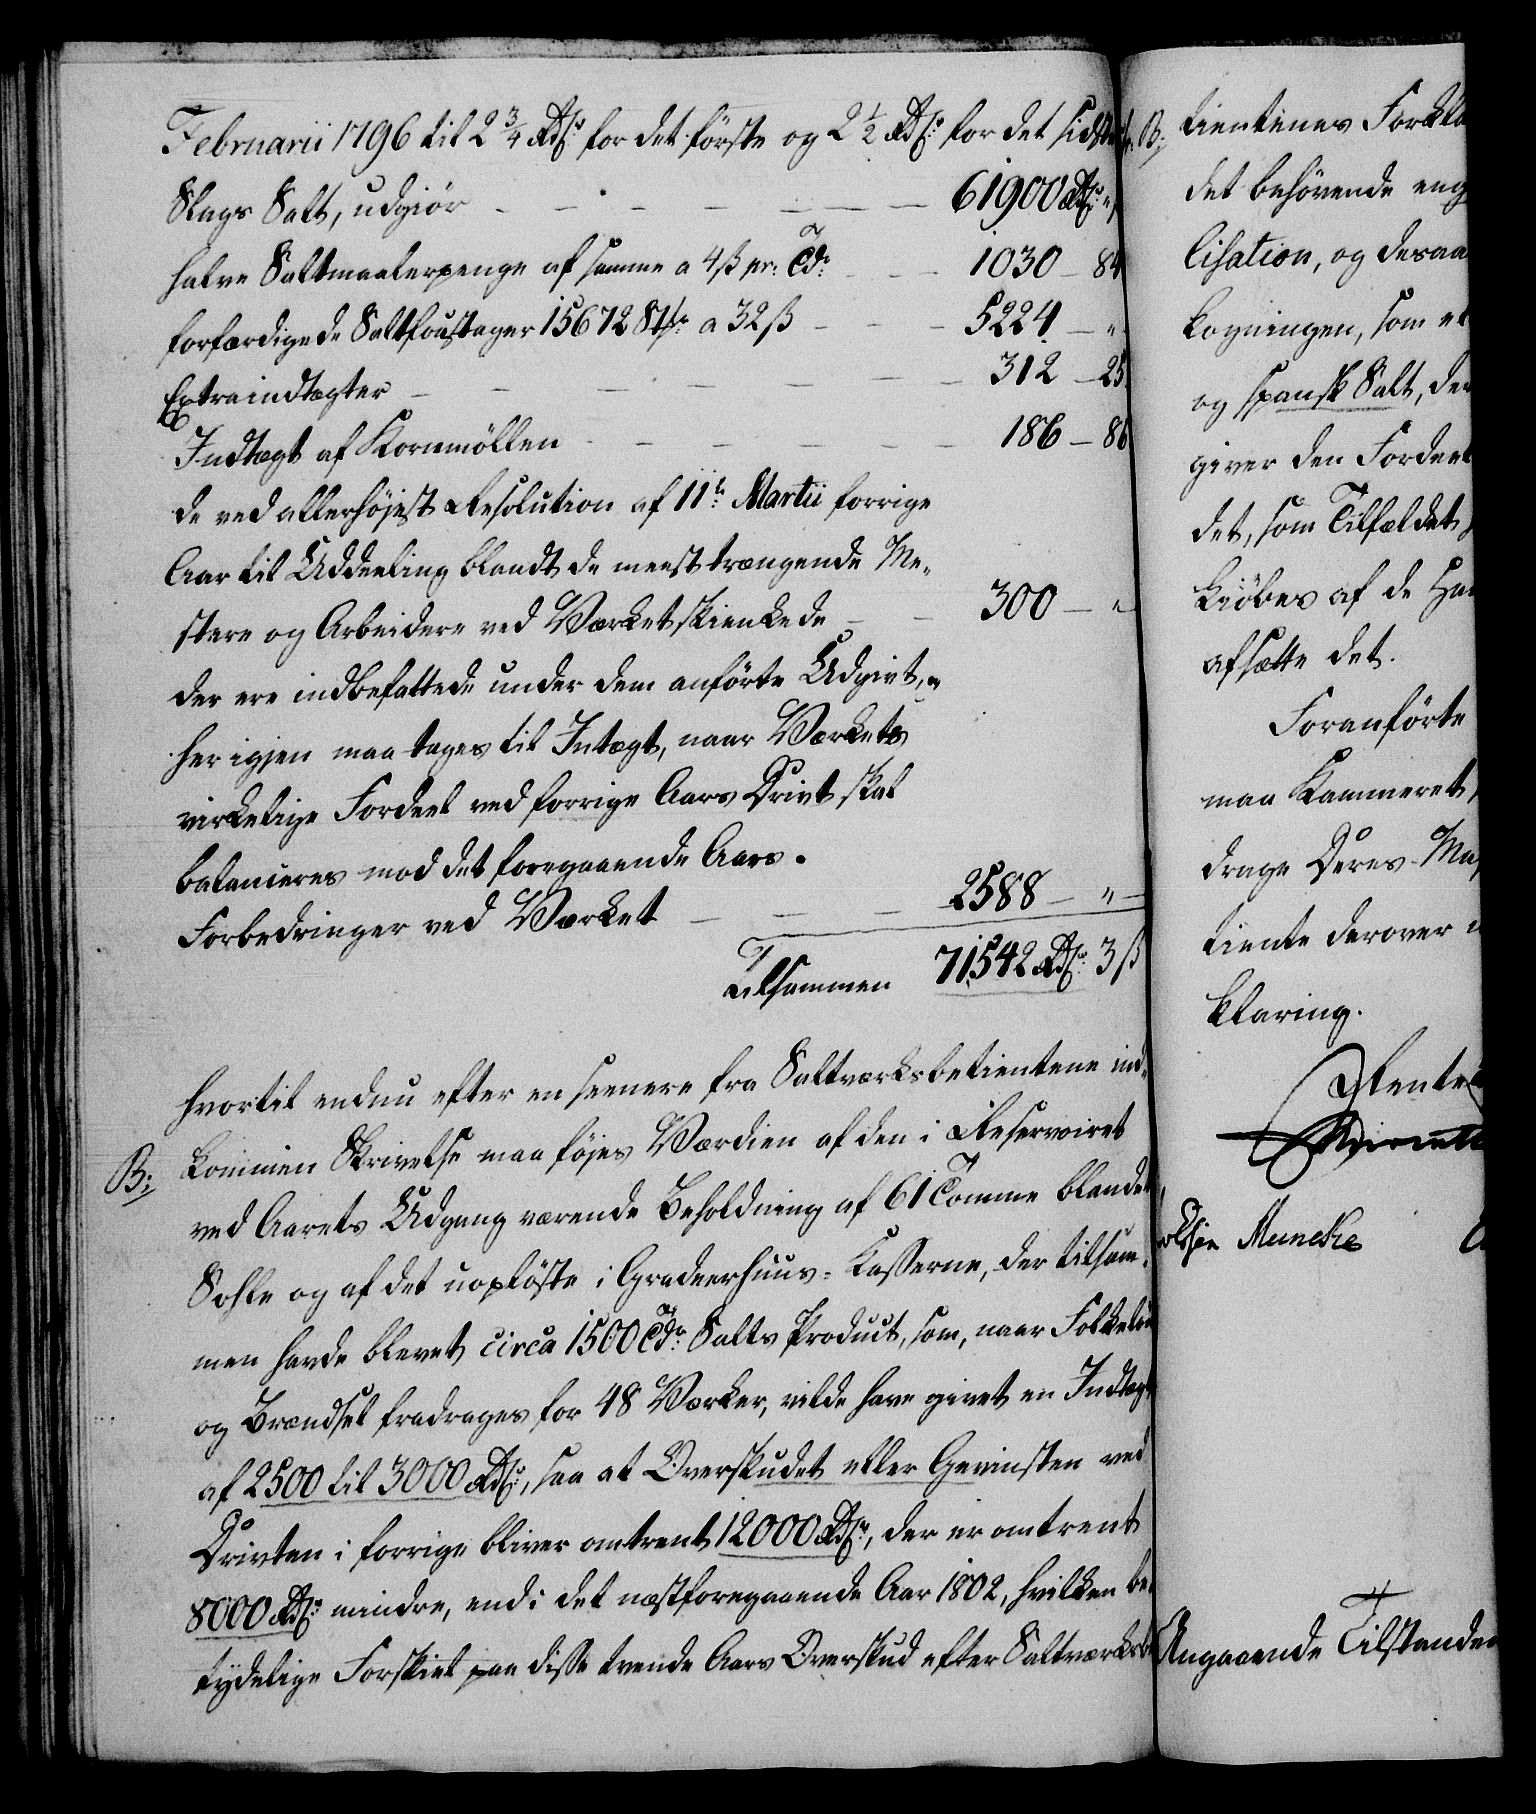 Februarii 1796 til 2 3/4 Rdlr for det første og 2 1/2 Rdlr for det sidste
Slags Salt, udgiør - - - - - 61900 Rdlr "
halve Saltmaalerpenge af samme a 4 ß pr. Tdr - - 1030 - 84
forfærdigede Saltfoustager 15672 Stkr a 32 ß - - - 5224 - "
Extraindtægter - - - - - - 312 - 25
Indtægt af Kornmøllen - - - - - 186 - 86
de ved allerhøjest Resolution af 11te Martii forrige
Aar til Uddeeling blandt de meest trængende Me-
stere og Arbeidere ved Værket skienkede - - 300 - "
der ere indbefattede under dem anførte Udgivt,
her igjen maa tages til Intægt, naar Værkets
virkelige Fordeel ved forrige Aars Drivt skal
balanceres mod det foregaaende Aars.
Forbedringer ved Værket - - - 2588 - " -
Tilsammen 71542 Rdlr 3 ß
hvortil endnu efter en seenere fra Saltværksbetientene ind-
B: kommen Skrivelse maa føjes Værdien af den i Reservoiret
ved Aarets Udgang værende Beholdning af 61 Tomme blandet
Sohle og af det uopløste i Gradeerhuus-Kasserne, der tilsam-
men havde blevet circa 1500 Tdr Salts Product, som, naar Folkeløn
og Brændsel fradrages for 48 Værker, vilde have givet en Indtægt
af 2500 til 3000 Rdlr, saa at Overskudet eller Gevinsten ved
Drivten i forrige bliver omtrent 12000 Rdlr, der er omtrent
8000 Rdlr mindre, end i det næstforegaaende Aar 1802, hvilken be-
tydelige Forskiel paa disse tvende Aars Overskud efter Saltværksbe
B: tientenes Forkla
det behøvende eng
lisation, og desaa
kogningen, som
og spansk Salt, de
giver den Fordeel
det, som Tilfældet
kiøbes af de
afsætte det.
Foranførte
maa Kammeret,
drage Deres Maj
tiente derover
klaring.
Rente
Meincke
Angaaende Tilstanden